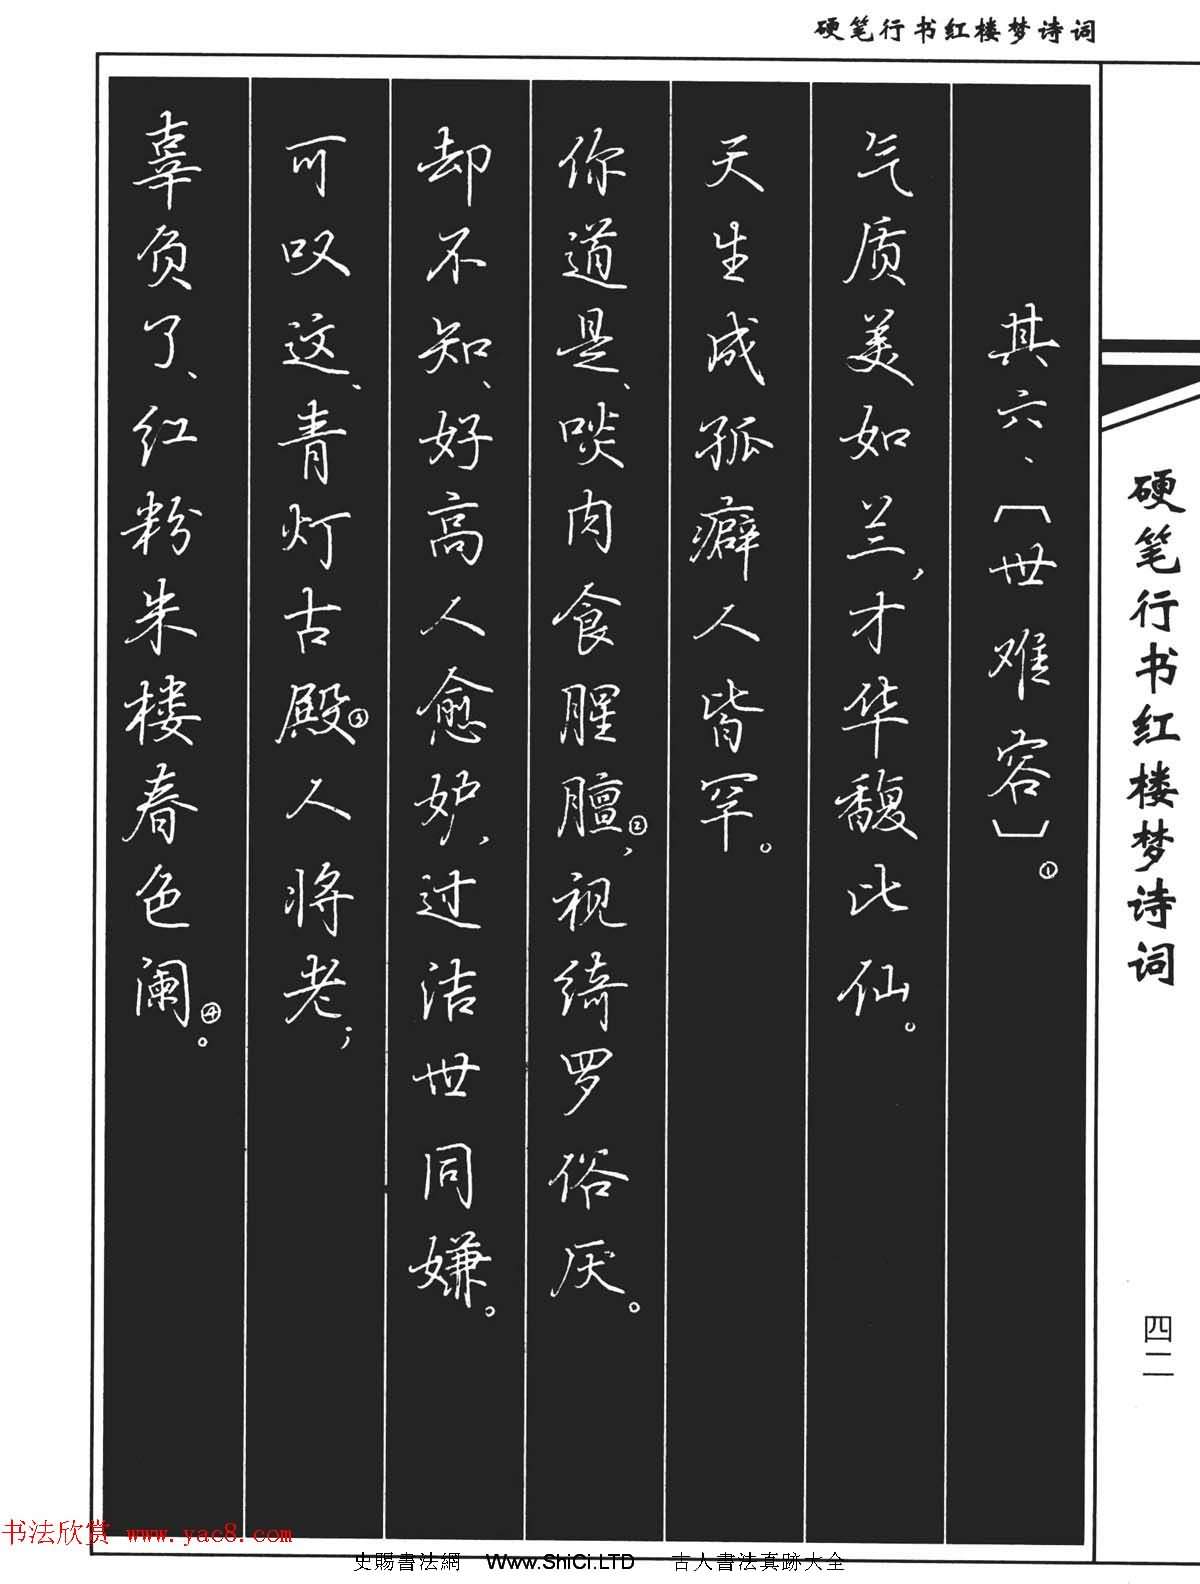 硬笔行书红楼梦诗词
其六、〔世难容〕①
气质美如兰,才华馥比仙。
天生成孤癖人皆罕。
你道是、啖肉食腥膻②,视绮罗俗厌。
却不知、好高人愈妒,过洁世同嫌。
可叹这、青灯古殿③人将老;
辜负了、红粉朱楼春色阑④。
硬笔行书红楼梦诗词
四二
书法欣赏 www.yac8.com
史賜書法網 Www.ShiCi.LTD 古人書法真跡大全